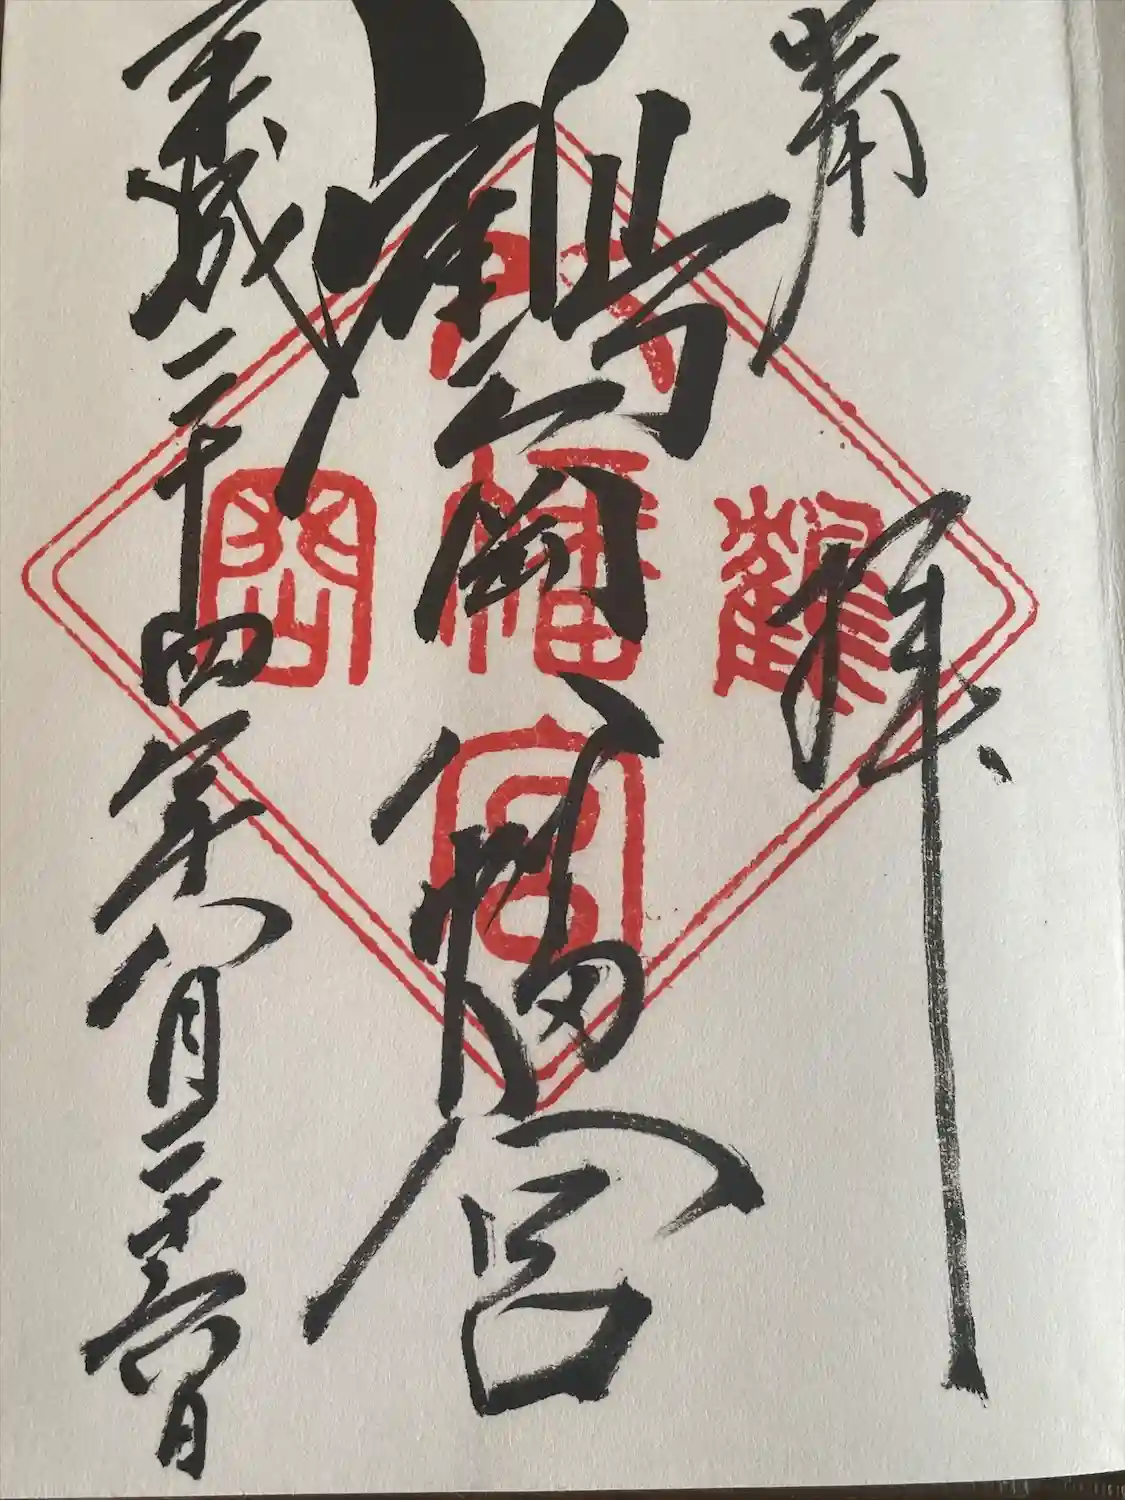 奉拝
鶴岡八幡宮
平成二十四年八月二十六日
鶴岡八幡宮